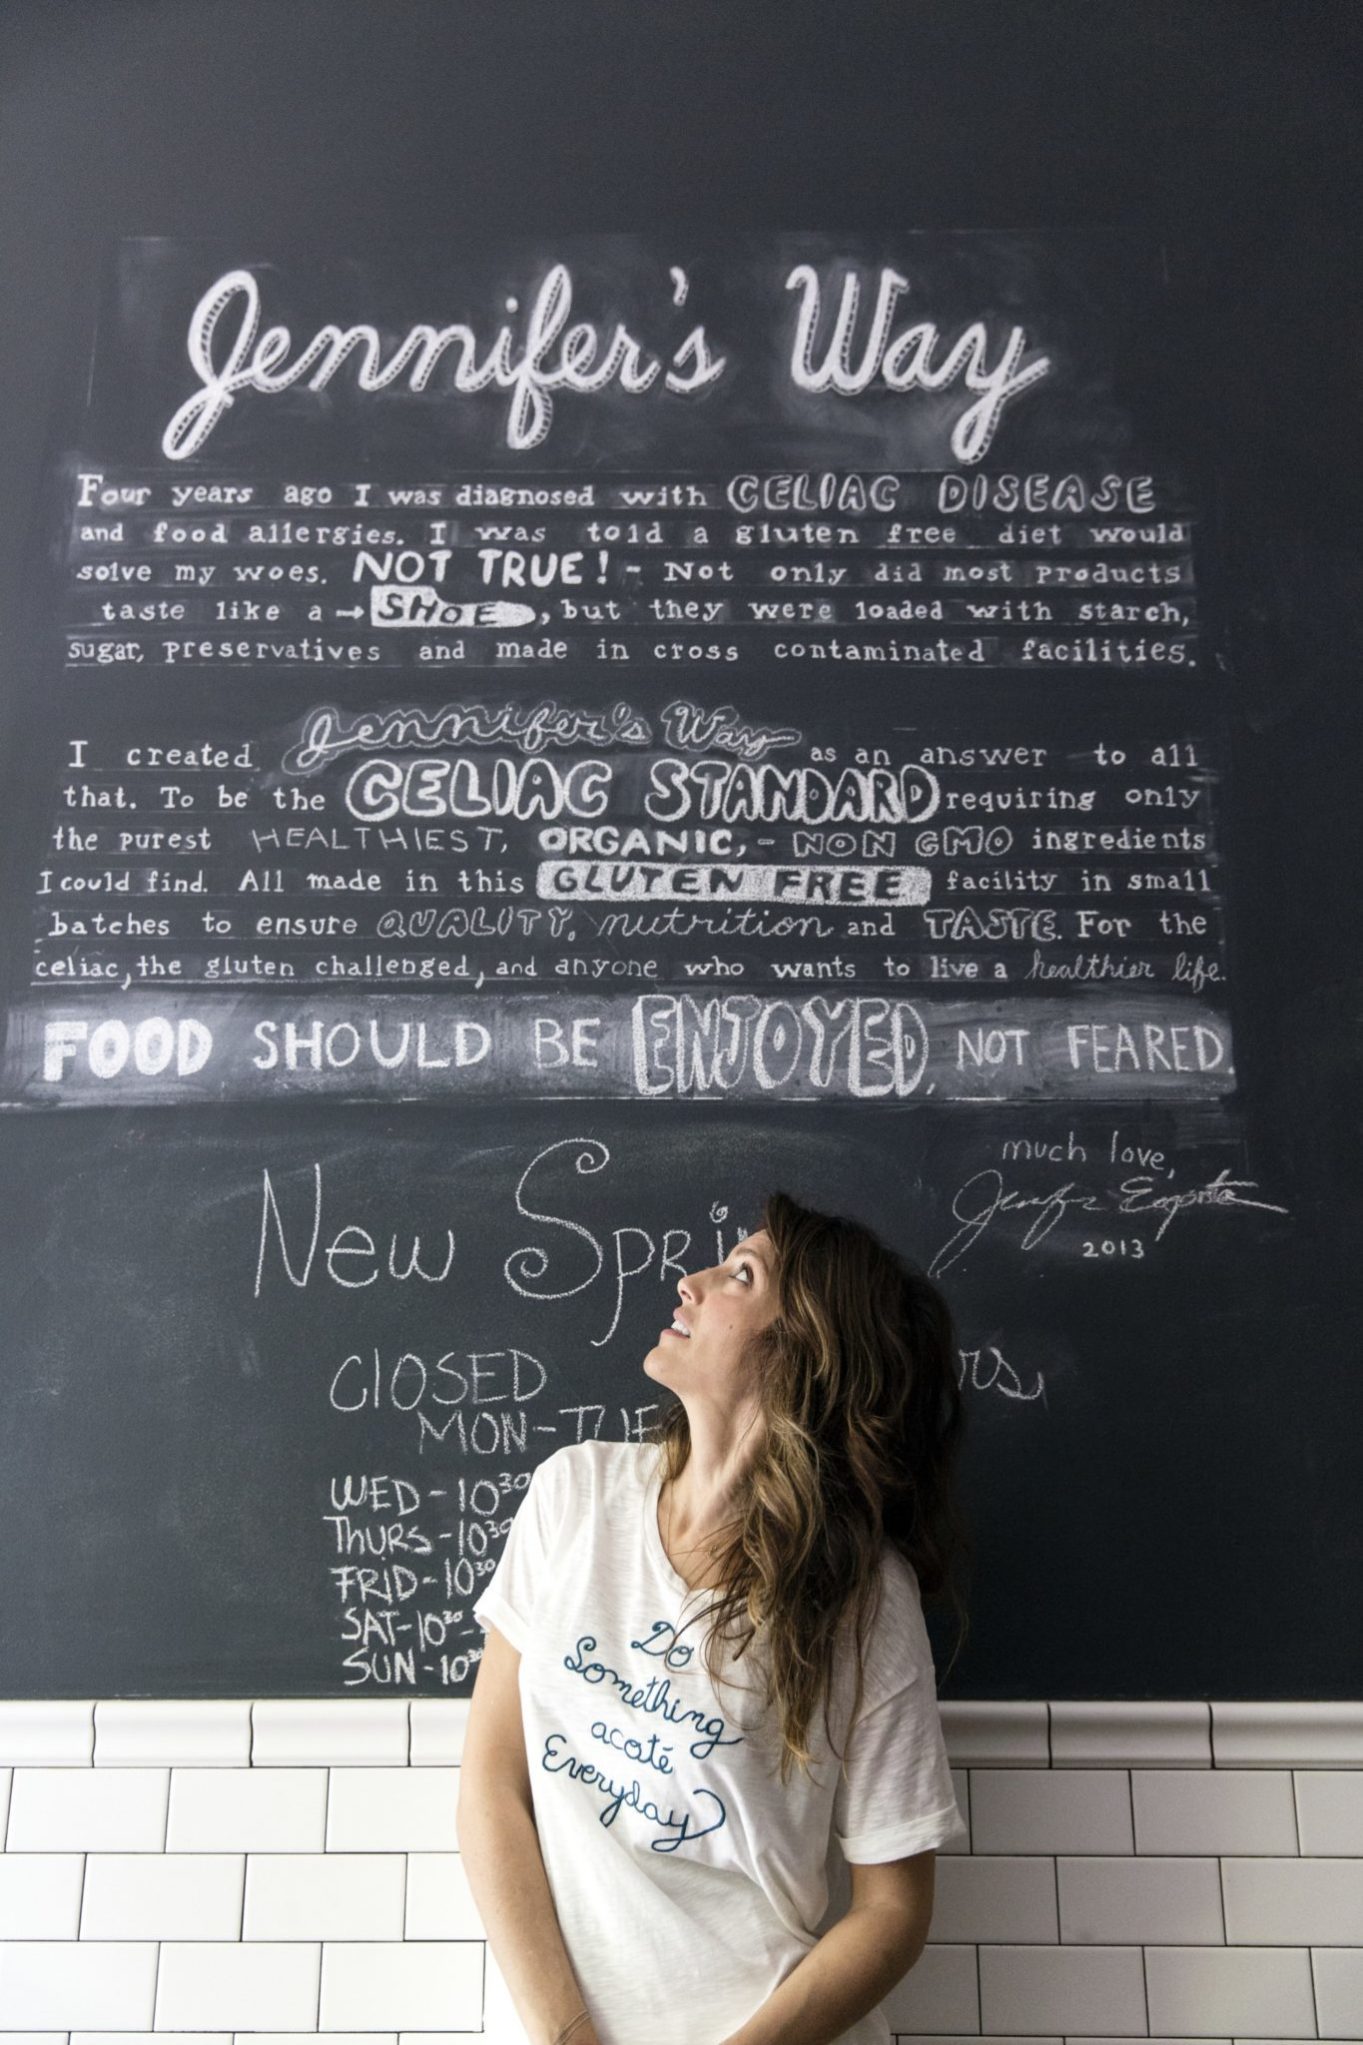 Jennifer's Way
Four years ago I was diagnosed with CELIAC DISEASE
and food allergies. I was told a gluten free diet would
solve my woes. NOT TRUE! - Not only did most products
taste like a → SHOE, but they were loaded with starch,
sugar, preservatives and made in cross contaminated facilities.
I created Jennifer's Way as an answer to all
that. To be the CELIAC STANDARD requiring only
the purest HEALTHIEST, ORGANIC, - NON GMO ingredients
I could find. All made in this GLUTEN FREE facility in small
batches to ensure QUALITY, nutrition and TASTE. For the
celiac, the gluten challenged, and anyone who wants to live a healthier life.
FOOD SHOULD BE ENJOYED, NOT FEARED.
much love,
Jennifer Esposito
2013
New Spri
CLOSED
MON-TUE
WED-10³⁰
THURS-10³⁰
FRID-10³⁰
SAT-10³⁰-
SUN-10³⁰
Do
Something
acoté
Everyday